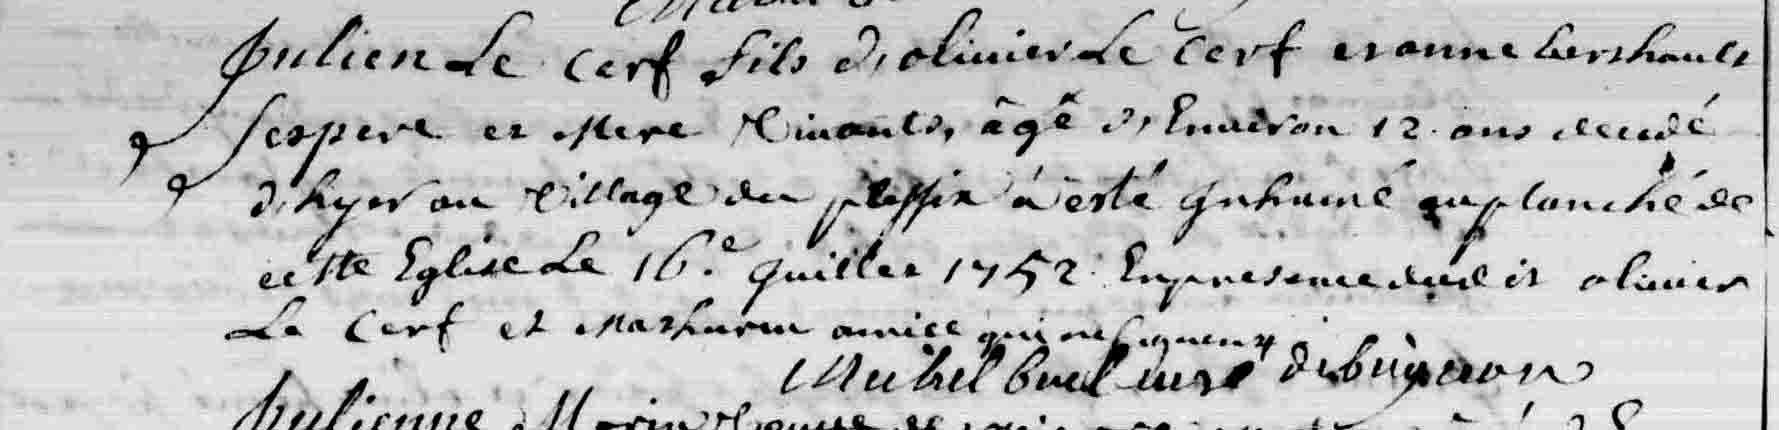 Julien Le Cerf fils d'olivier Le Cerf et anne bershault
ses pere et Mere vivants, âgé d'Environ 12 ans decedé
d'hyer au village du plessix à esté jnhumé au planché de
cette Eglise Le 16.e juillet 1752 En presence dudit olivier
Le Cerf et Mathurin amice qui ne signent
Michel buel curé
Julienne Morin